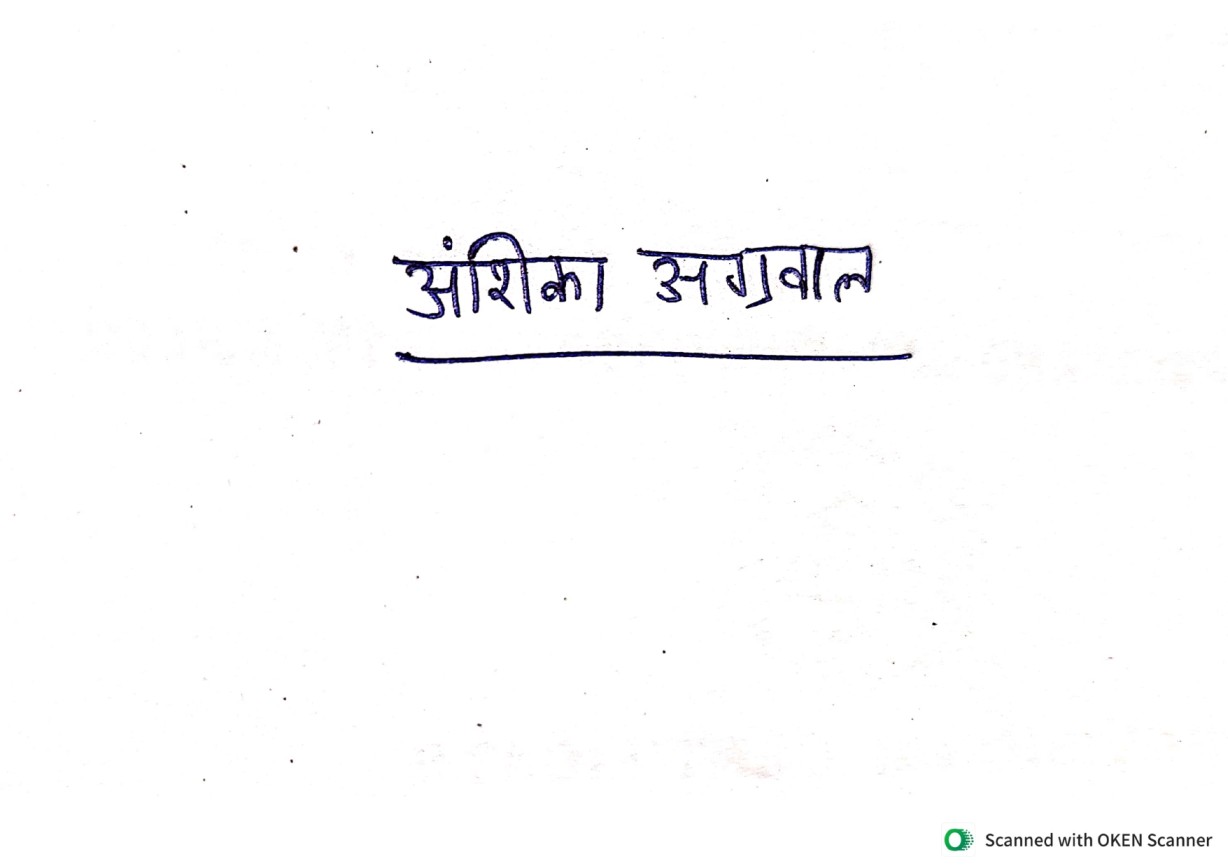 अंशिका अग्रवाल
Scanned with OKEN Scanner